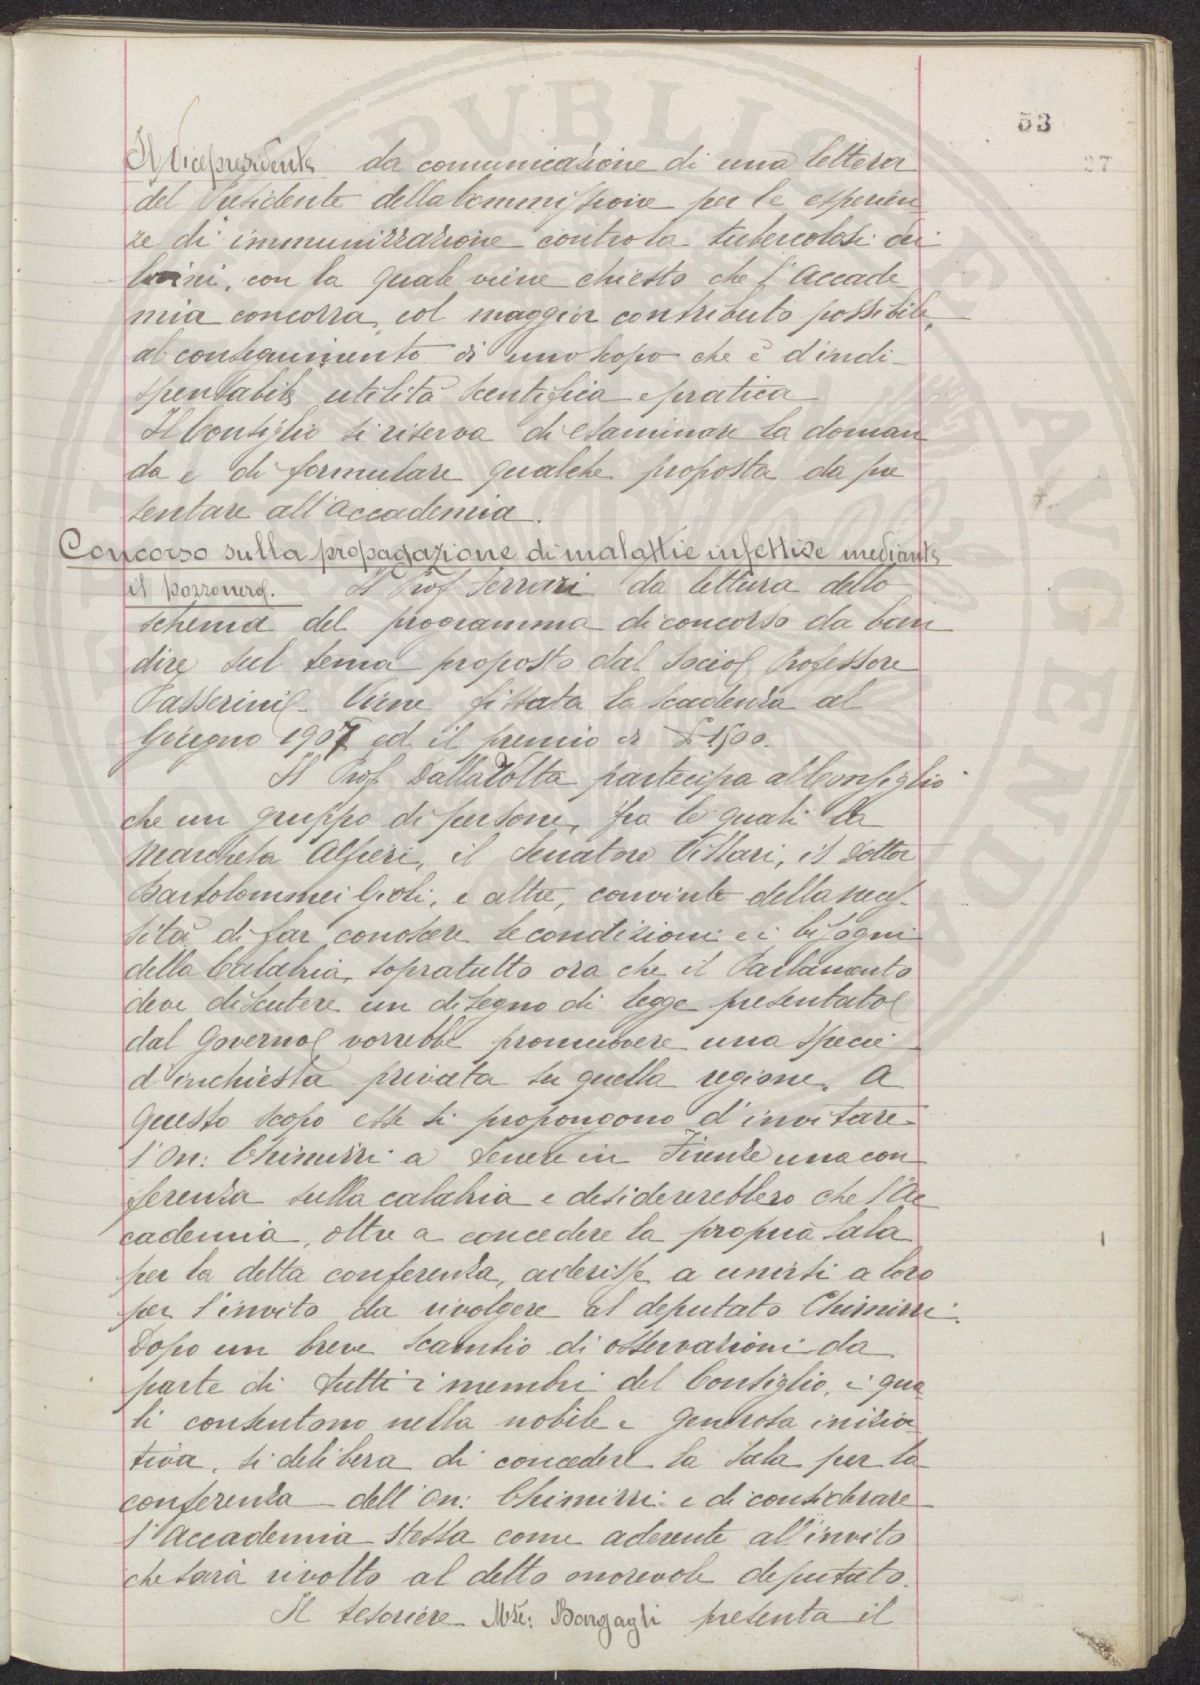 53
27
Il Vicepresidente da comunicazione di una lettera
del Presidente della Commissione per le esperien
ze di immunizzazione contro la tubercolosi dei
bovini, con la quale viene chiesto che l'Accade
mia concorra, col maggior contributo possibile,
al conseguimento di uno scopo che è d'indi-
spensabile utilità scentifica e pratica
Il Consiglio si riserva di esaminare la doman
da e di formulare qualche proposta da pre
sentare all'Accademia.
Concorso sulla propagazione di malattie infettive mediante
il pozzonero. Il Prof Ferrari da lettura dello
schema del programma di concorso da ban
dire sul tema proposto dal socio Professore
Passerini. Viene fissata la scadenza al
Giugno 1907 ed il premio di £ 1500.
Il Prof. Dalla Volta partecipa al Consiglio
che un gruppo di persone, fra le quali la
Marchesa Alfieri, il Senatore Villari, il Dottor
Bartolommei Gioli, e altre, convinte della neces-
sità di far conoscere le condizioni e i bisogni
della Calabria, sopratutto ora che il Parlamento
deve discutere un disegno di legge presentato
dal Governo vorrebbe promuovere una specie
d'inchiesta privata su quella regione. A
questo scopo esse si propongono d'invitare
l'On: Chimirri a tenere in Firenze una con
ferenza sulla calabria e desidererebbero che l'Ac
cademia, oltre a concedere la propria sala
per la detta conferenza, aderisse a unirsi a loro
per l'invito da rivolgere al deputato Chimirri.
Dopo un breve scambio di osservazioni da
parte di tutti i membri del Consiglio, i qua
li consentono nella nobile e generosa inizia
tiva, si delibera di concedere la sala per la
conferenza dell'On: Chimirri e di considerare
l'Accademia stessa come aderente all'invito
che sarà rivolto al detto onorevole deputato.
Il tesoriere Mse: Bargagli presenta il